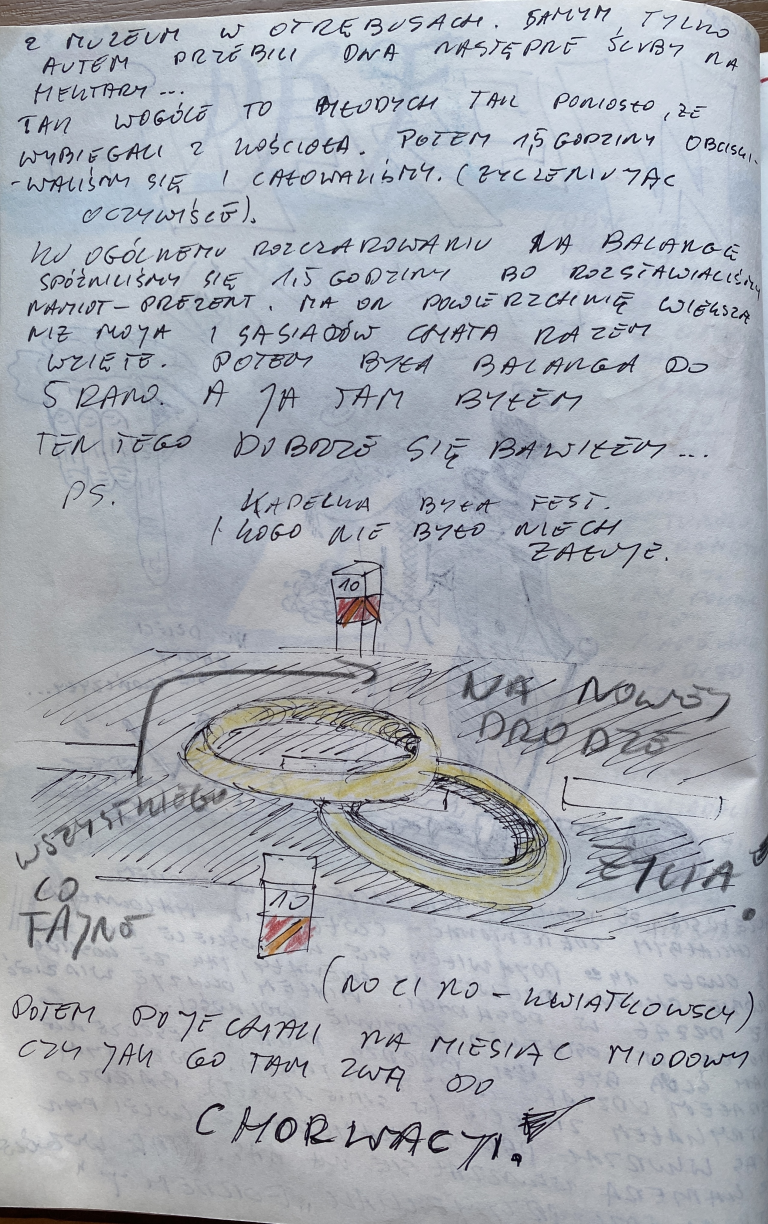 Z MUZEUM W OTRĘBUSACH. SAMYM TYLKO
AUTEM PRZEBILI DWA NASTĘPNE ŚLUBY NA
HEKTARY...
TAK WOGÓLE TO MŁODYCH TAK PONIOSŁO, ŻE
WYBIEGALI Z KOŚCIOŁA. POTEM 1,5 GODZINY OBCISKI-
-WALIŚMY SIĘ I CAŁOWALIŚMY. (ŻYCZENIUJĄC
OCZYWIŚCIE).
KU OGÓLNEMU ROZCZAROWANIU NA BALANGĘ
SPÓŹNILIŚMY SIĘ 1,5 GODZINY BO ROZSTAWIALIŚMY
NAMIOT-PREZENT. MA ON POWIERZCHNIĘ WIĘKSZĄ
NIŻ MOJA I SĄSIADÓW CHATA RAZEM
WZIĘTE. POTEM BYŁA BALANGA DO
5 RANO. A JA TAM BYŁEM
TEN TEGO DOBRZE SIĘ BAWIŁEM...
PS. KAPELKA BYŁA FEST.
I KOGO NIE BYŁO NIECH
ŻAŁUJE.
10
NA NOWEJ
DRODZE
WSZYSTKIEGO
CO
FAJNE
ŻYCIA!
10
(NO CI NO-KWIATKOWSCY)
POTEM POJECHALI NA MIESIĄC MIODOWY
CZY JAK GO TAM ZWĄ DO
CHORWACJI!